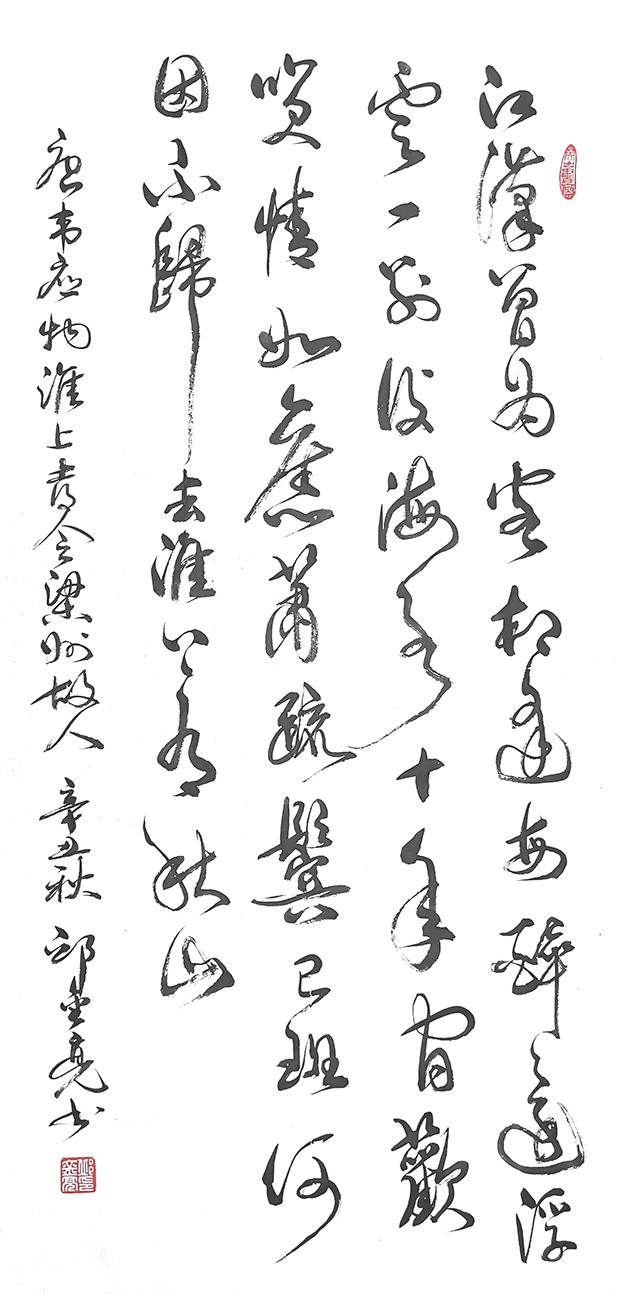 江漢曾為客相逢每醉還浮
雲一別後流水十年間歡
咲情如舊蕭疏鬢已班何
因不歸去淮上有秋山
唐韋應物淮上喜會梁州故人 辛丑秋 邱金亮書